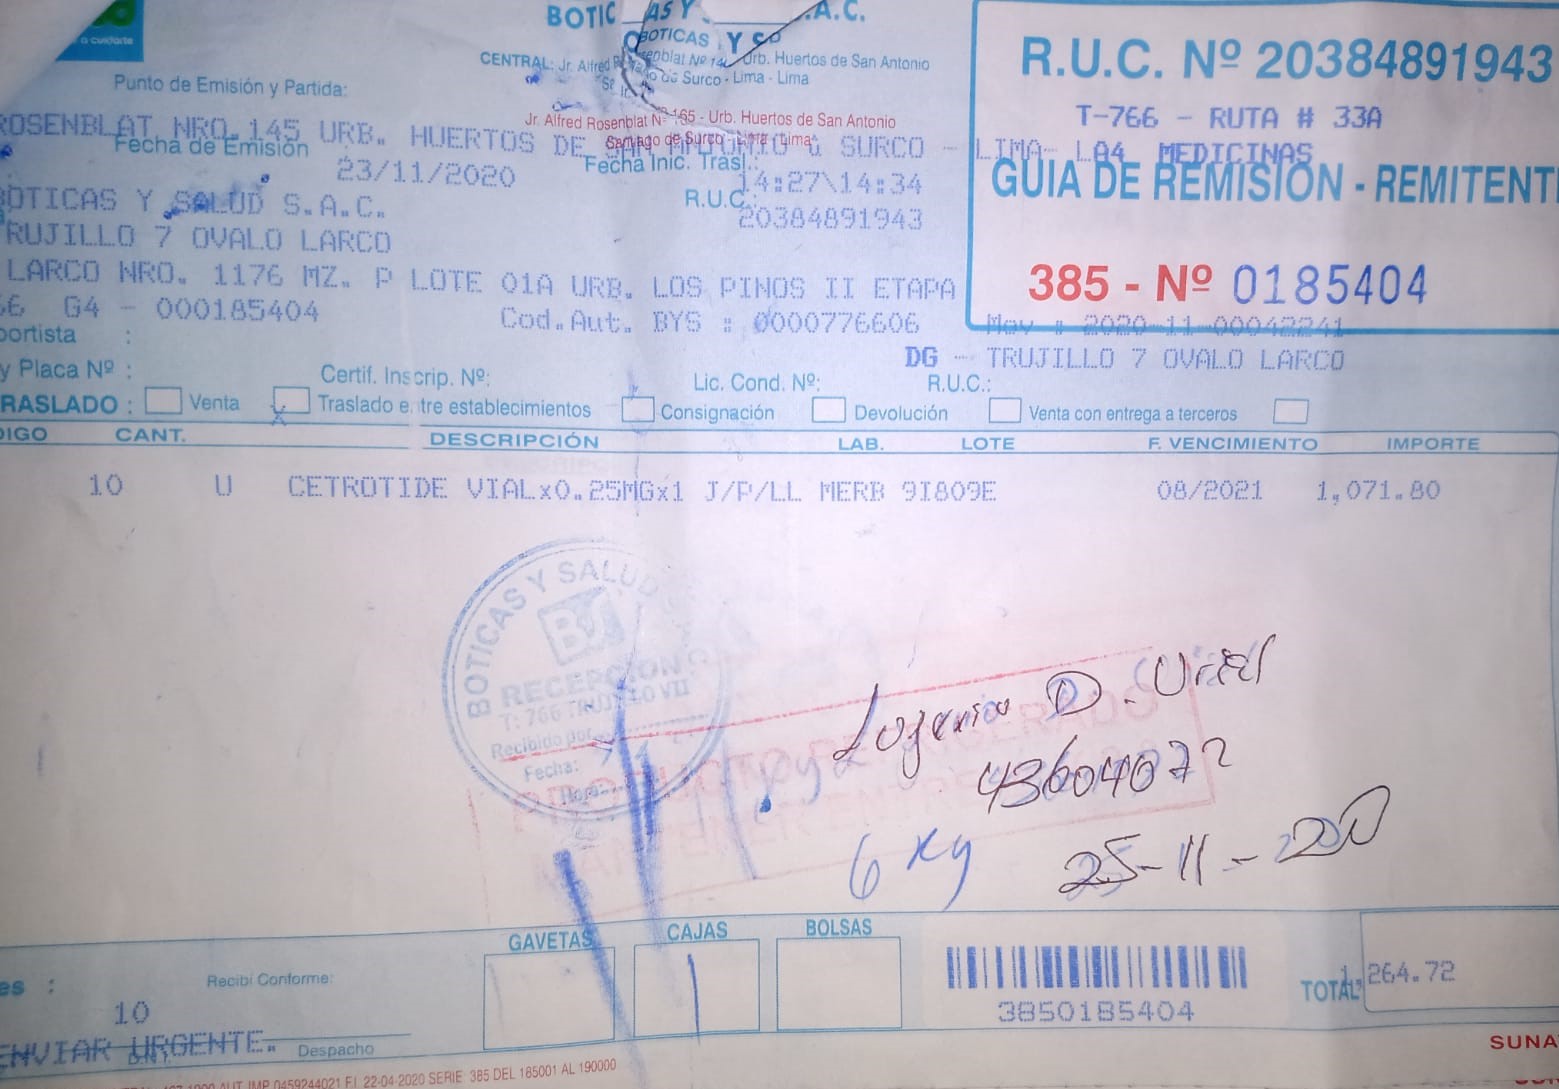 a cuidarte
BOTIC AS Y .A.C.
BOTICAS Y S
CENTRAL: Jr. Alfred Rosenblat Nº 14 Urb. Huertos de San Antonio
de Surco - Lima - Lima
Jr. Alfred Rosenblat Nº 165 - Urb. Huertos de San Antonio
Santiago de Surco - Lima - Lima
R.U.C. Nº 20384891943
T-766 - RUTA # 33A
LA4 MEDICINAS
GUIA DE REMISIÓN - REMITENT
385 - Nº 0185404
Punto de Emisión y Partida:
ROSENBLAT NRO. 145 URB. HUERTOS DE SURCO - LIMA
Fecha de Emisión 23/11/2020
Fecha Inic. Trasl.: 14:27\14:34
BOTICAS Y SALUD S.A.C.
R.U.C.: 20384891943
RUJILLO 7 OVALO LARCO
LARCO NRO. 1176 MZ. P LOTE 01A URB. LOS PINOS II ETAPA
G4 - 000185404 Cod.Aut. BYS : 0000776606 Mov : 2020-11-00042241
portista :
DG - TRUJILLO 7 OVALO LARCO
y Placa Nº : Certif. Inscrip. Nº: Lic. Cond. Nº: R.U.C.:
RASLADO : Venta X Traslado entre establecimientos Consignación Devolución Venta con entrega a terceros
DIGO CANT. DESCRIPCIÓN LAB. LOTE F. VENCIMIENTO IMPORTE
10 U CETROTIDE VIALx0.25MGx1 J/P/LL MERB 9I809E 08/2021 1,071.80
BOTICAS Y SALUD
BS
RECEPCION
T: 766 TRUJILLO VII
Recibido por
Fecha:
Hora:
PRODUCTO REFRIGERADO
D. Uriel
43604072
6 xy 25-11-2020
GAVETAS CAJAS BOLSAS
1
es : Recibí Conforme:
10
ENVIAR URGENTE. Despacho
3850185404
TOTAL 264.72
SUNA
AUT. IMP. 0459244021 F.I. 22-04-2020 SERIE: 385 DEL 185001 AL 190000